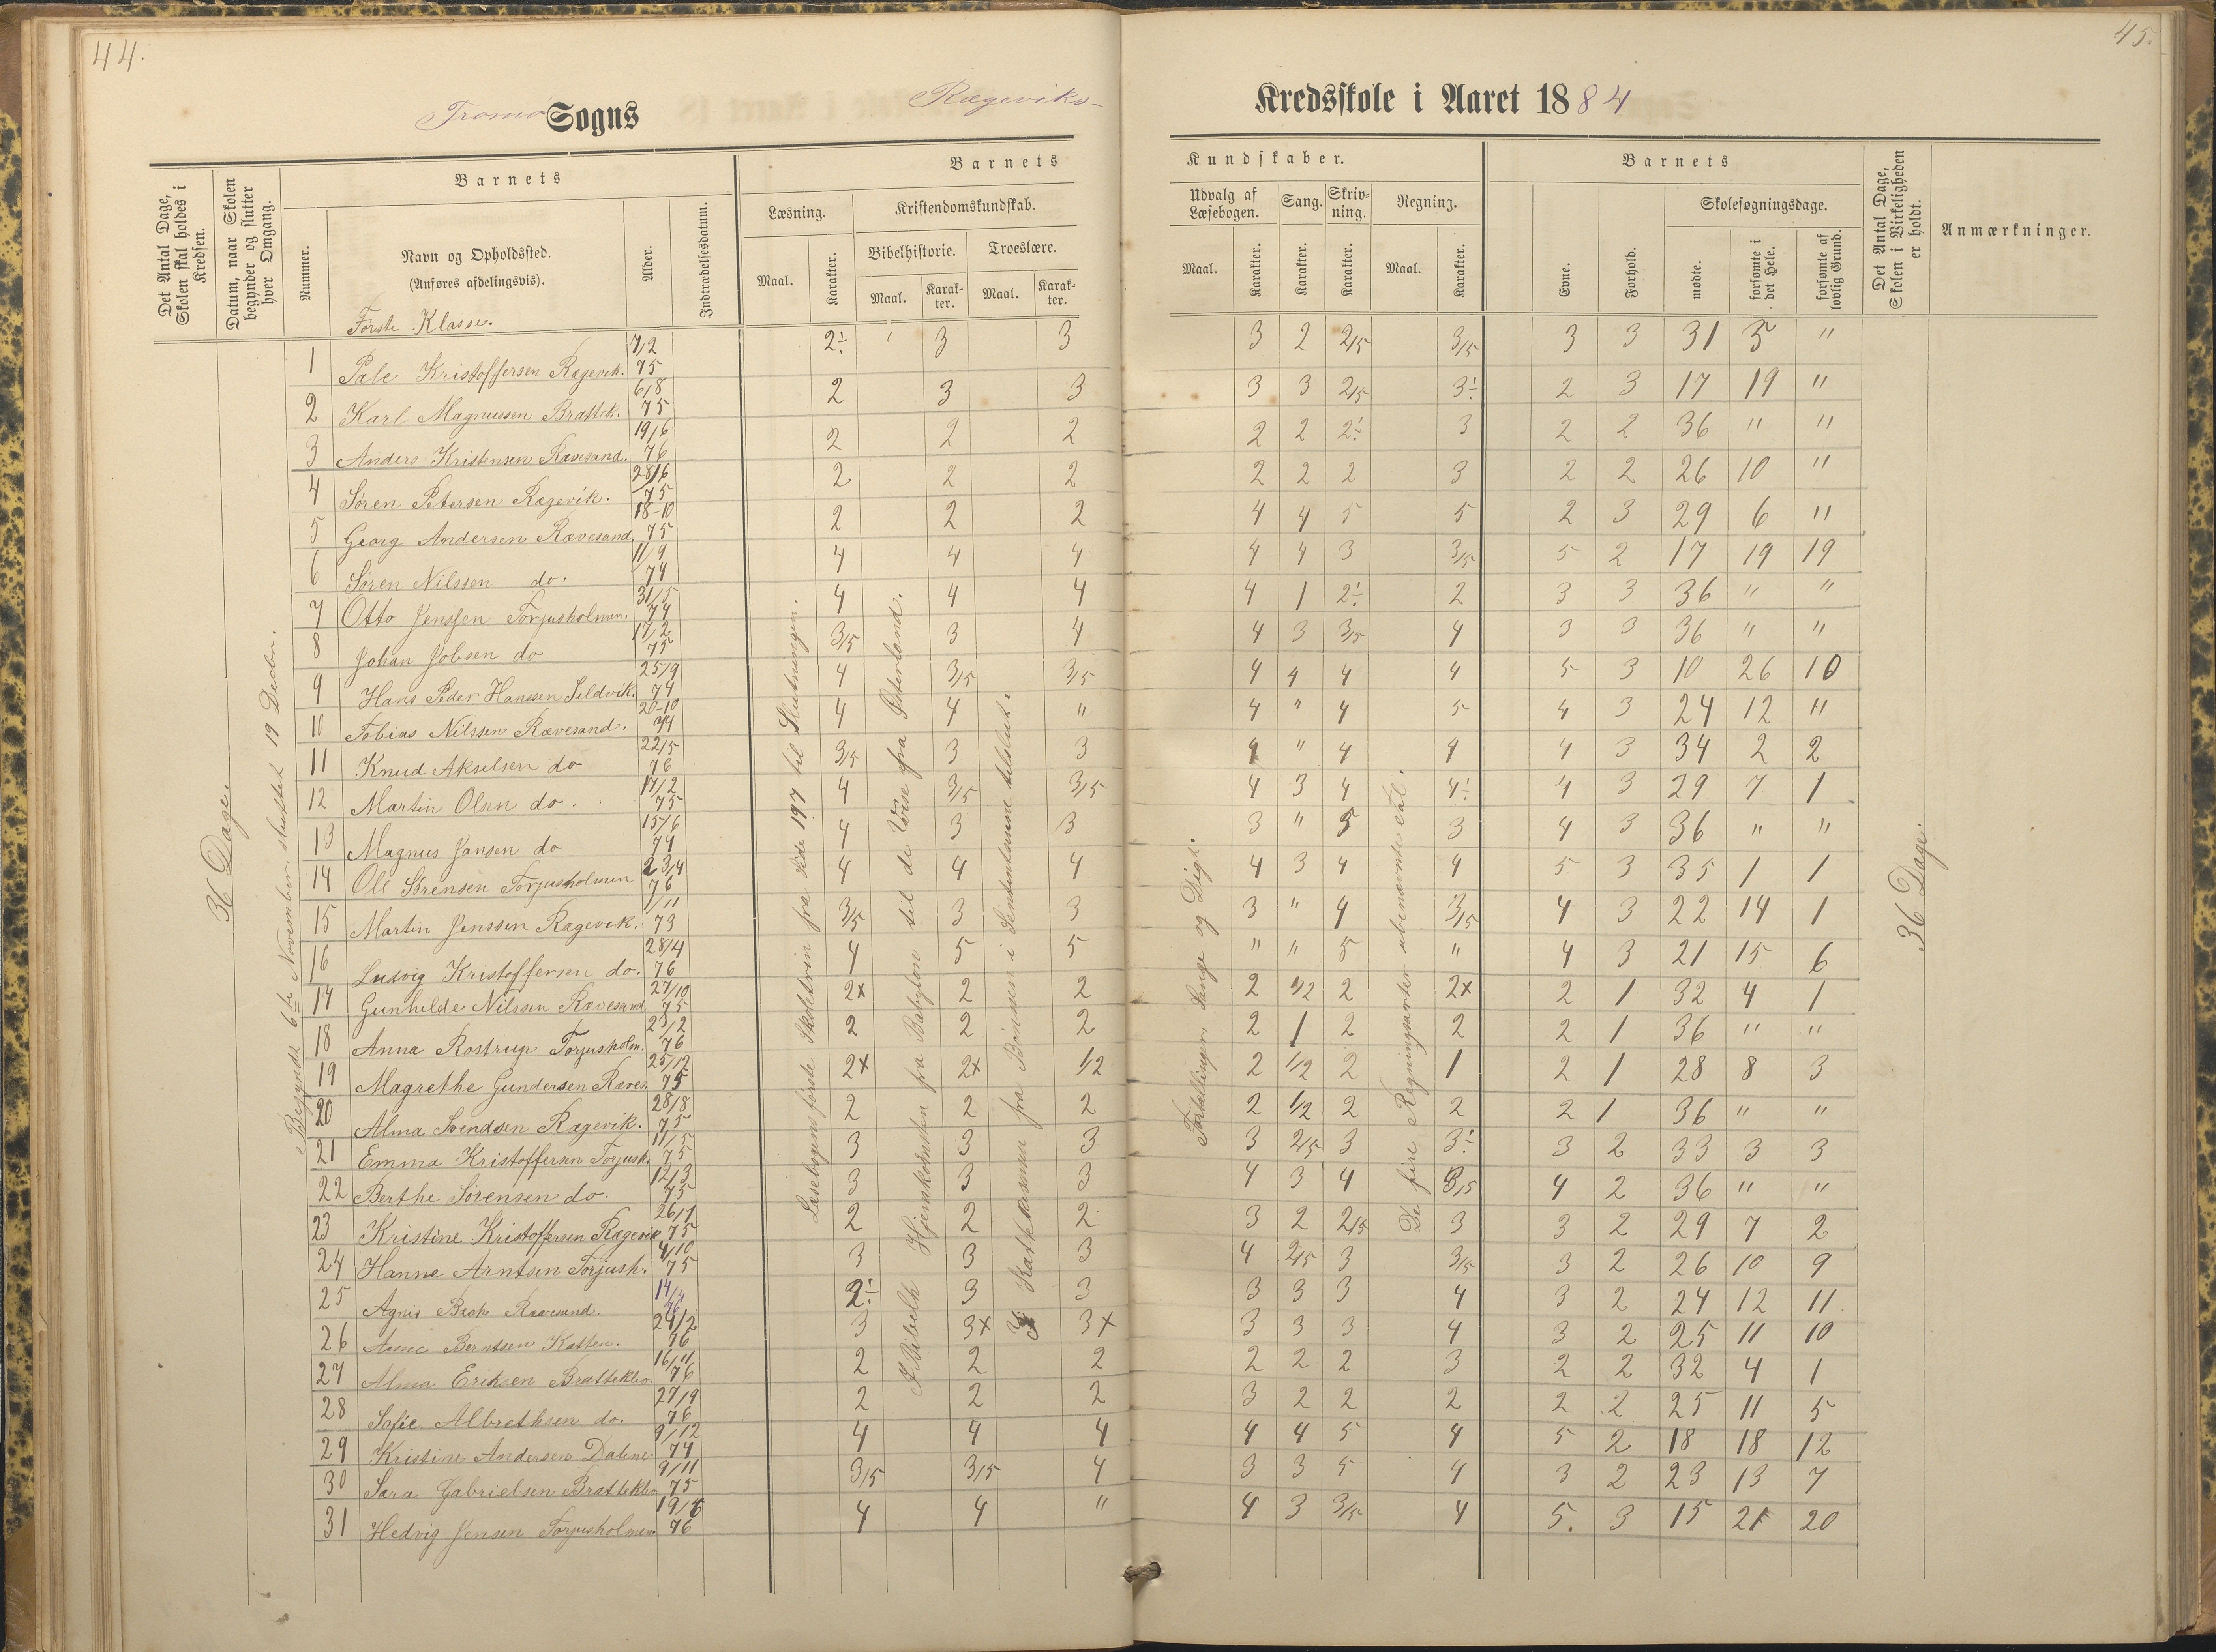 44.
45.
Tromø Sogns Rægeviks-
Kredsskole i Aaret 1884
Det Antal Dage, Skolen skal holdes i Kredsen.
Datum, naar Skolen begynder og slutter hver Omgang.
Barnets
Nummer.
Navn og Opholdssted.
(Anføres afdelingsvis).
Alder.
Indtrædelsesdatum.
Barnets
Læsning.
Maal.
Karakter.
Kristendomskundskab.
Bibelhistorie.
Maal.
Karakter.
Troeslære.
Maal.
Karakter.
Kundskaber.
Udvalg af Læsebogen.
Maal.
Karakter.
Sang.
Karakter.
Skrivning.
Karakter.
Regning.
Maal.
Karakter.
Barnets
Evne.
Forhold.
Skolesøgningsdage.
mødte.
forsømte i det Hele.
forsømte af lovlig Grund.
Det Antal Dage, Skolen i Virkeligheden er holdt.
Anmærkninger.
36 Dage.
Begyndt 6te November. sluttet 19 Decbr.
Læsebogens første Skoletrin fra Side 197 til Slutningen.
I Bibelh Hjemkomsten fra Babylon til de Vise fra Østerland.
I Katekismen fra Bønnen i Sententserne tilslut.
Fortællinger, Sange og Digt.
De fire Regningsarter ubenævnte tal.
36 Dage.
Første Klasse.
1 Pale Kristoffersen Rægevik. 7/2 75 2÷ 3 3 3 2 2/15 3/15 3 3 31 5 "
2 Karl Magnussen Brattek. 6/8 75 2 3 3 3 3 2/15 3÷ 2 3 17 19 "
3 Anders Kristensen Rævesand. 19/6 76 2 2 2 2 2 2÷ 3 2 2 36 " "
4 Søren Petersen Rægevik. 28/6 75 2 2 2 2 2 2 3 2 2 26 10 "
5 Georg Andersen Rævesand. 18-10 75 2 2 2 4 4 5 5 2 3 29 6 "
6 Søren Nilssen do. 11/9 74 4 4 4 4 4 3 3/15 5 2 17 19 19
7 Otto Jenssen Torjusholmen. 31/5 74 4 4 4 4 1 2÷ 2 3 3 36 " "
8 Johan Jobsen do 17/2 75 3/15 3 4 4 3 3/15 4 3 3 36 " "
9 Hans Peder Hanssen Sildvik. 25/9 74 4 3/15 3/15 4 4 4 4 5 3 10 26 10
10 Tobias Nilssen Rævesand. 20-10 74 4 4 " 4 " 4 5 4 3 24 12 "
11 Knud Akselsen do 22/5 76 3/15 3 3 4 " 4 4 4 3 34 2 2
12 Martin Olsen do. 17/2 75 4 3/15 3/15 4 3 4 4÷ 4 3 29 7 1
13 Magnus Jansen do 15/6 74 4 3 3 3 " 5 3 4 3 36 " "
14 Ole Sørensen Torjusholmen 23/4 76 4 4 4 4 3 4 4 5 3 35 1 1
15 Martin Jenssen Rægevik. 1/11 73 3/15 3 3 3 " 4 3/15 4 3 22 14 1
16 Ludvig Kristoffersen do. 28/4 76 4 5 5 " " 5 " 4 3 21 15 6
17 Gunhilde Nilssen Rævesand 27/10 75 2x 2 2 2 1/2 2 2x 2 1 32 4 1
18 Anna Rostrup Torjusholm. 23/2 76 2 2 2 2 1 2 2 2 1 36 " "
19 Magrethe Gundersen Ræves. 25/12 75 2x 2x 1/2 2 1/2 2 1 2 1 28 8 3
20 Alma Svendsen Rægevik. 28/8 75 2 2 2 2 1/2 2 2 2 1 36 " "
21 Emma Kristoffersen Torjush. 11/5 75 3 3 3 3 2/15 3 3÷ 3 2 33 3 3
22 Berthe Sørensen do. 12/3 75 3 3 3 4 3 4 3/15 4 2 36 " "
23 Kristine Kristoffersen Rægevik 26/1 75 2 2 2 3 2 2/15 3 3 2 29 7 2
24 Hanne Arntsen Torjush. 4/10 75 3 3 3 4 2/15 3 3/15 3 2 26 10 9
25 Agnis Rævesand. 14/4 76 2÷ 3 3 3 3 3 4 3 2 24 12 11
26 Berntsen Katten. 24/2 76 3 3x 3x 3 3 3 4 3 2 25 11 10
27 Alma Eriksen Brattekleo 16/11 76 2 2 2 2 2 2 3 2 2 32 4 1
28 Sofie Albrethsen do. 27/9 76 2 2 2 3 2 2 2 2 2 25 11 5
29 Kristine Andersen Dalene. 9/12 74 4 4 4 4 4 5 4 5 2 18 18 12
30 Sara Gabrielsen Brattekleo 9/11 75 3/15 3/15 4 3 3 5 4 3 2 23 13 7
31 Hedvig Jensen Torjusholmen 19/6 76 4 4 " 4 3 3/15 4 5. 3 15 21 20